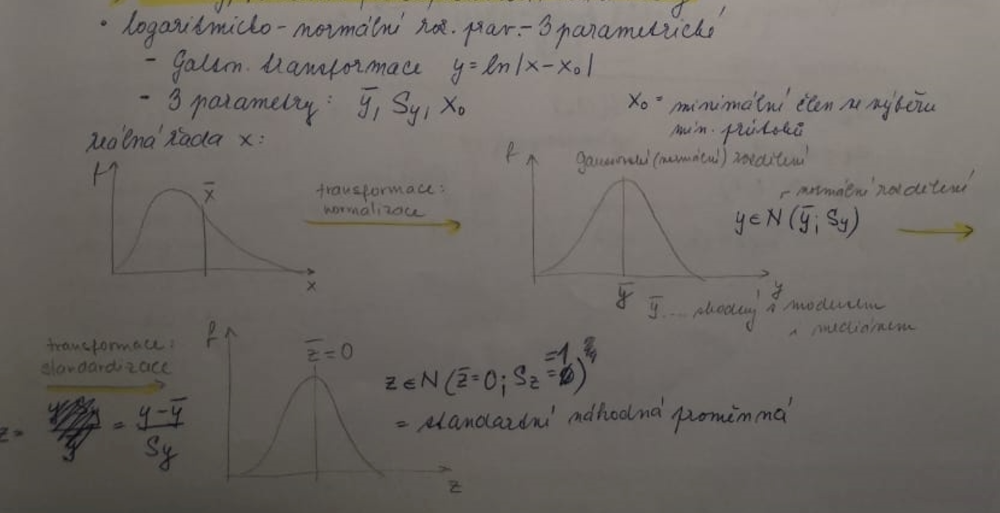 • logaritmicko-normální roz. prav. - 3 parametrické
- Galton. transformace y = ln|x-x₀|
- 3 parametry: ȳ, Sy, X₀
X₀ = minimální člen ve výběru
min. průtoků
reálná řada x:
f
x̄
x
transformace:
normalizace
f
gaussovské (normální) rozdělení
ȳ
y
normální rozdělení
y ∈ N (ȳ; Sy)
ȳ.... shodný s modusem
s mediánem
transformace:
standardizace
z = = y-ȳ / Sy
f
z̄ = 0
z
z ∈ N (z̄ = 0; Sz = 1)
= standardní náhodná proměnná